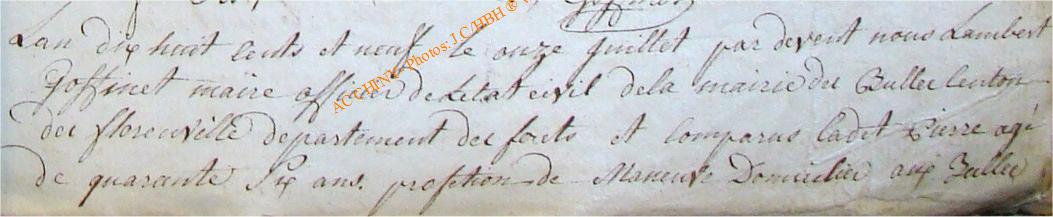 Goffinet
Lan dix huit cents et neuf le onze juillet par devent nous Lambert
Goffinet maire officier de Letat civil de la mairie der Buller Centon
der florenville departement der forets et comparus Cadet Pierre agé
de quarante Six ans. profition de Maneuve Domicilier aux Buller
ACCHFNY Photos: J.C/HBH ®